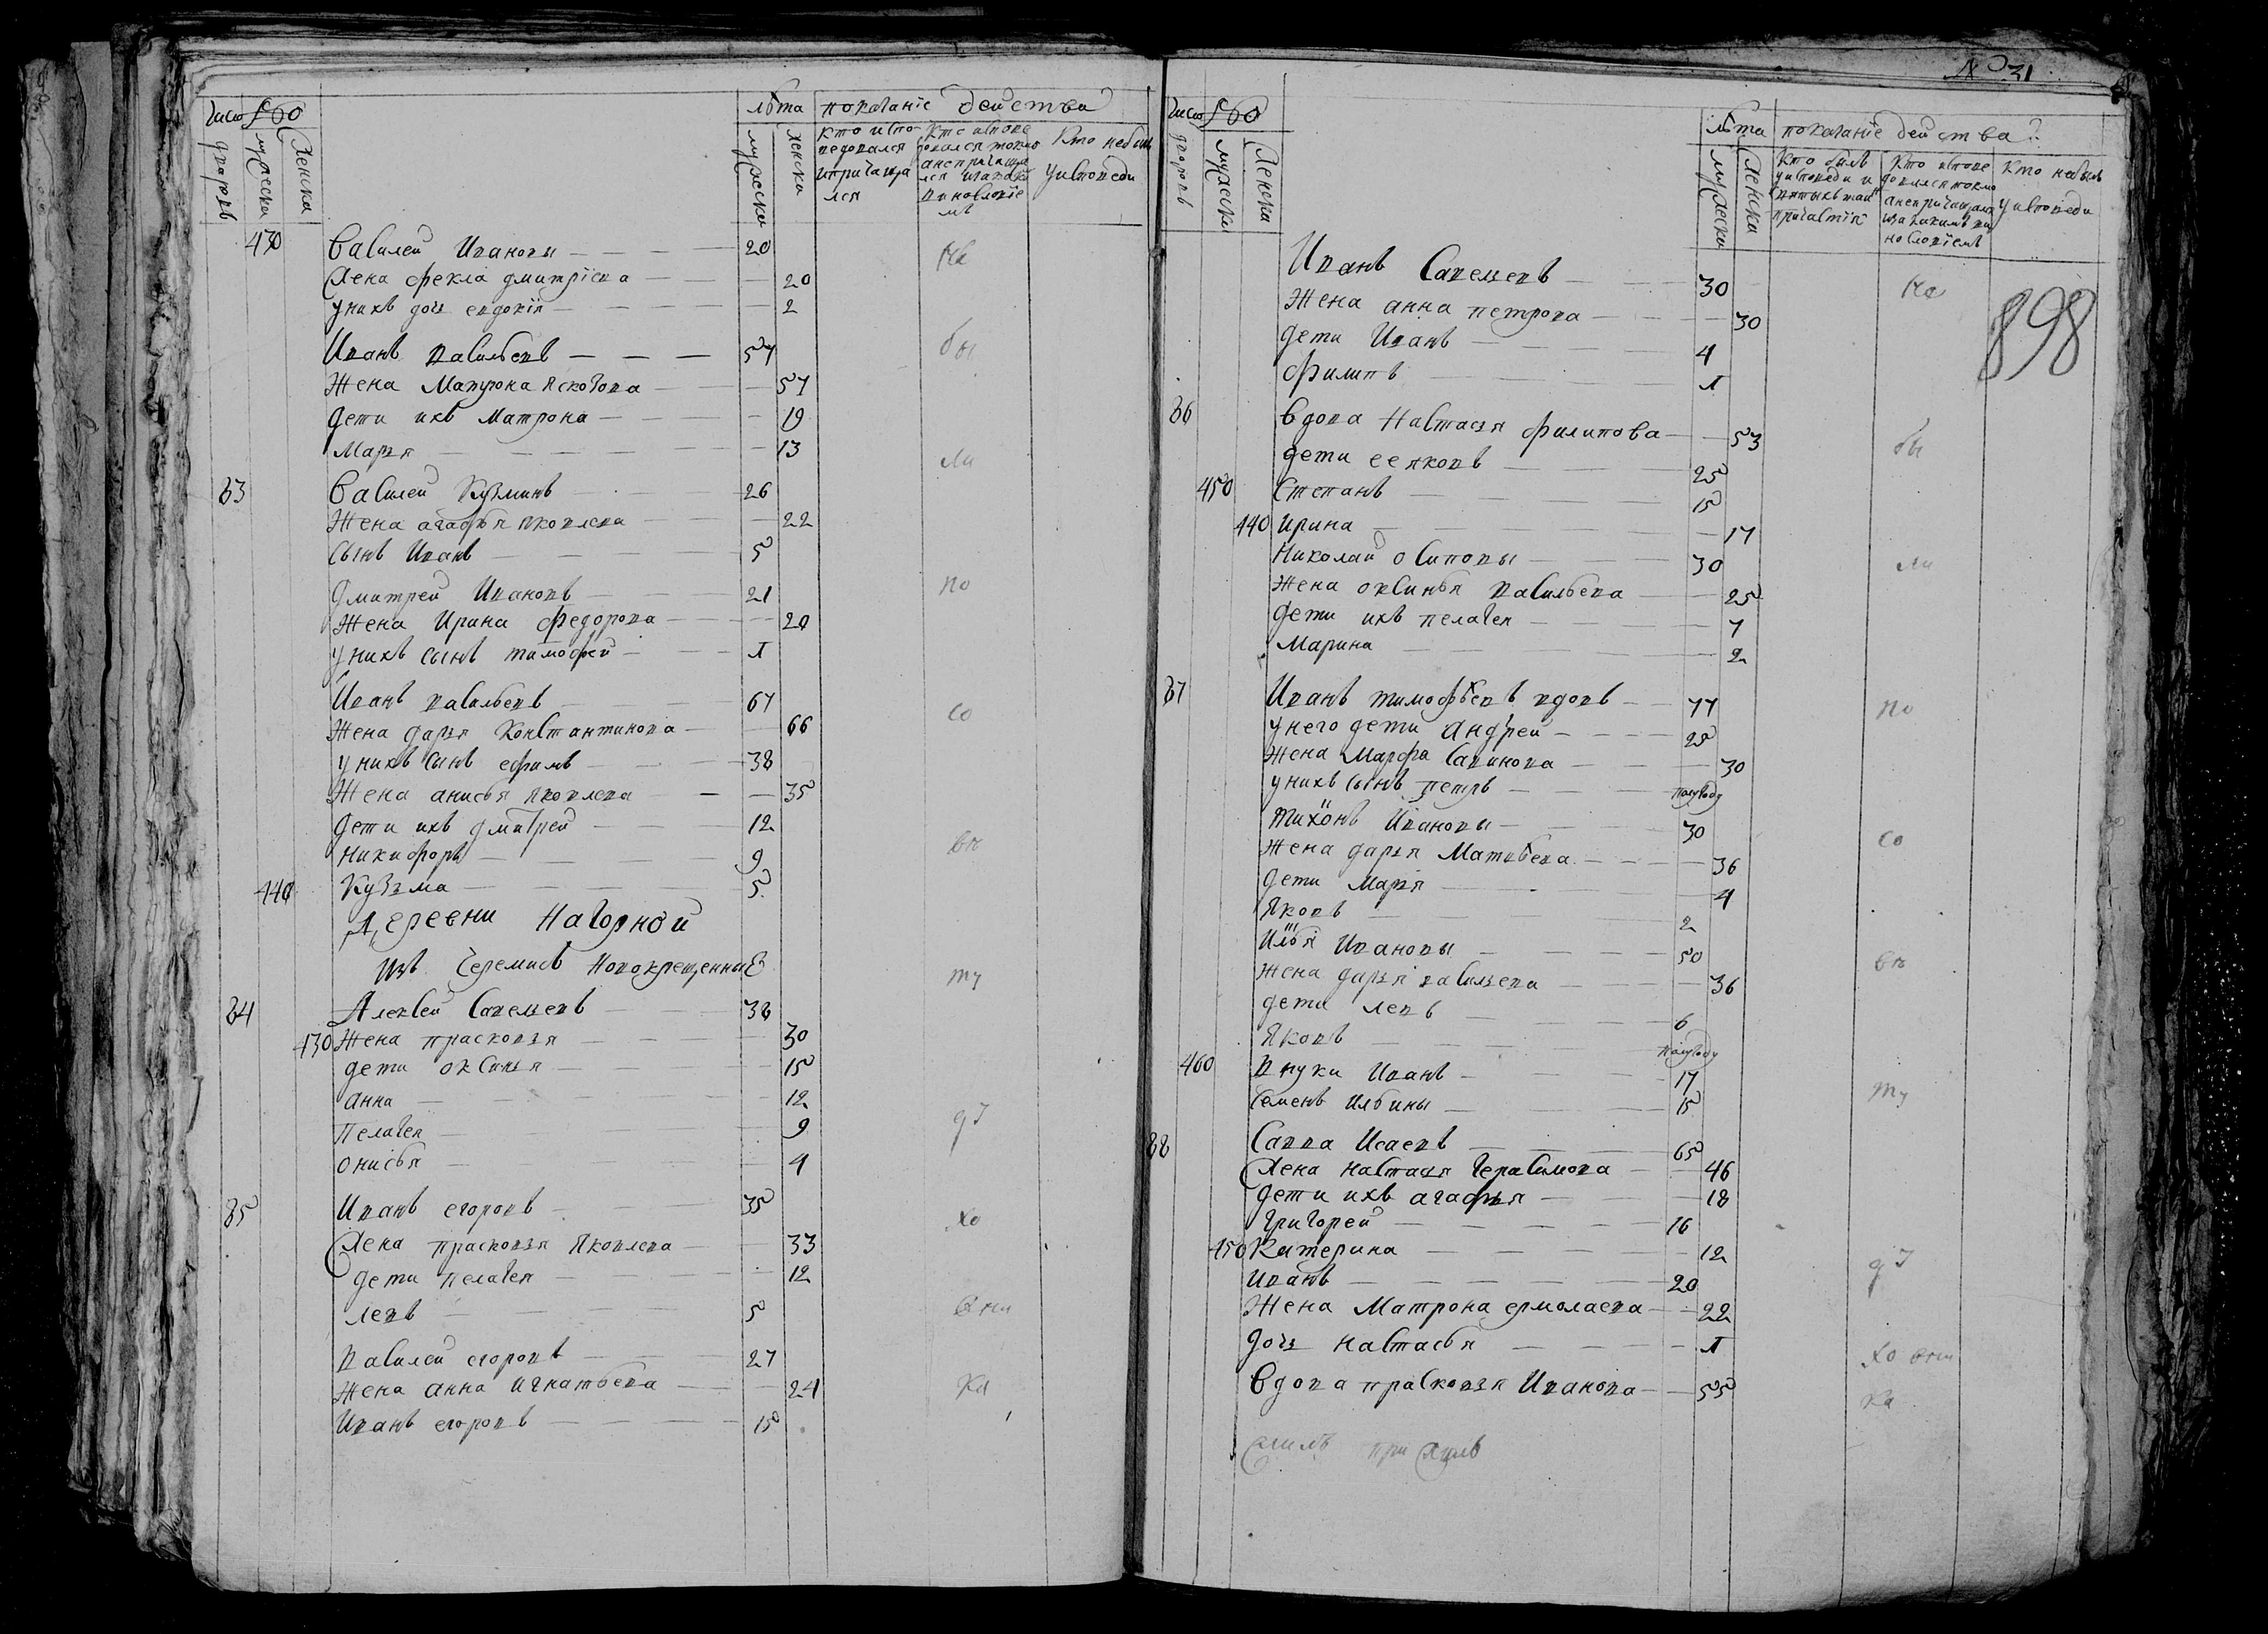 число LбО
лѣта показанїе действа
дворовъ мужеска женска
мужеска женска
кто испо- ведовался и причаща лся
кто испове довался токмо а не причаща лся и за каки виновлоїе мъ
кто не былъ у исповеди
430 Василей Ивановы — — 20 не
жена фекла дмитрїева — — 20
у нихъ дочь евдокїя — — 2
Иванъ васильевъ — — — 57 бы
жена Матрона яковова — — 57
дети ихъ Матрона — — 19
Марья — — — 13 ли
83 василей Кузминъ — — 26
жена агафья яковлева — — 22
сынъ Иванъ — — 5
дмитрей Ивановъ — — 21 по
жена Ирина федорова — — 20
у нихъ сынъ тимофей — — 1
Иванъ васильевъ — — 67
жена дарья Константинова — — 66 со
у нихъ сынъ ефимъ — — 38
жена анисья яковлева — — 35
дети ихъ дмитрей — — 12
никифоръ — — 9 вѣ
440 Кузьма — — 5
Деревни Нагорной
изъ Черемисъ новокрещенныѣ ту
84 Алексей Савельевъ — — 38
430 жена прасковья — — 30
дети оксинья — — 15
анна — — 12
пелагея — — 9 дї
онисья — — 4
85 Иванъ егоровъ — — 35 хо
жена прасковья яковлева — — 33
дети пелагея — — 12
левъ — — 5 вни
василей егоровъ — — 27
жена анна игнатьева — — 24 ка
Иванъ егоровъ — — 15
№ 31
число LбО
лѣта показанїе действа
дворовъ мужеска женска
мужеска женска
кто былъ у исповеди и святыхъ таи причастїя
кто испове довался токмо а не причащался и за какимъ ви новлопїемъ
кто не былъ у исповеди
Иванъ Савельевъ — — 30 не
898
жена анна петрова — — 30
дети Иванъ — — 4
филипъ — — 1
86 вдова Настасья филипова — — 53 бы
дети ее яковъ — — 25
450 степанъ — — 15
440 ирина — — 17
николай осиповы — — 30 ли
жена оксинья васильева — — 25
дети ихъ пелагея — — 7
Марина — — 2
87 Иванъ тимофѣевъ вдовъ — — 77 по
у него дети андрей — — 25
жена Марфа савинова — — 30
у нихъ сынъ петръ — — полугоду
тихонъ Ивановы — — 30 со
жена дарья Матвѣева — — 36
дети Марья — — 4
яковъ — — 2
илья Ивановы — — 50 вѣ
жена дарья васильева — — 36
дети левъ — — 6
яковъ — — полугоду
460 внуки Иванъ — — 17 ту
семенъ ильины — — 15
88 савва Исаевъ — — 65
жена настасья герасимова — — 46
дети ихъ агафья — — 18
григорей — — 16
450 катерина — — 12 дї
Иванъ — — 20
жена Матрона ермолаева — — 22
дочь настасья — — 1 хо вни
вдова прасковья Иванова — — 55 ка
симъ при